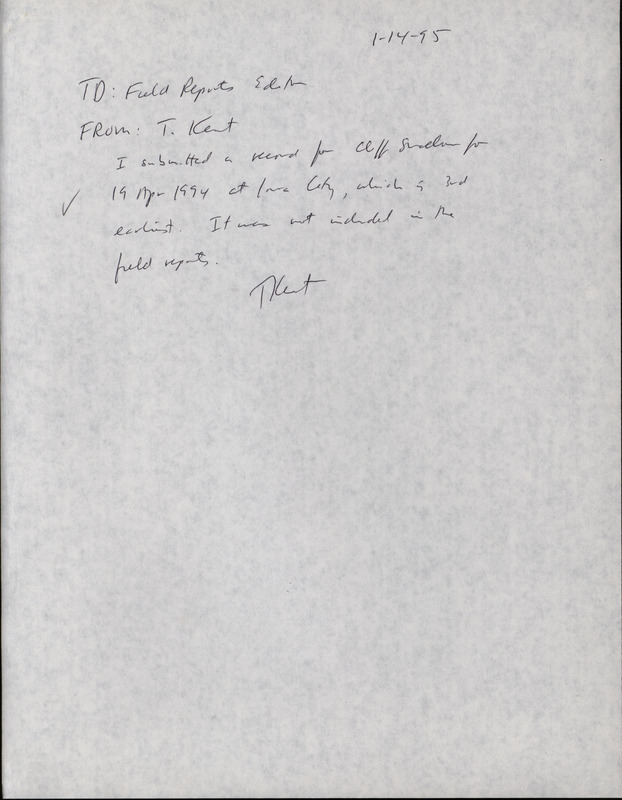 1-14-95
TO: Field Reports Editor
FROM: T. Kent
I submitted a record for Cliff Swallow for
✓ 19 Apr 1994 at Iowa City, which is 3rd
earliest. It was not included in the
field reports.
TKent